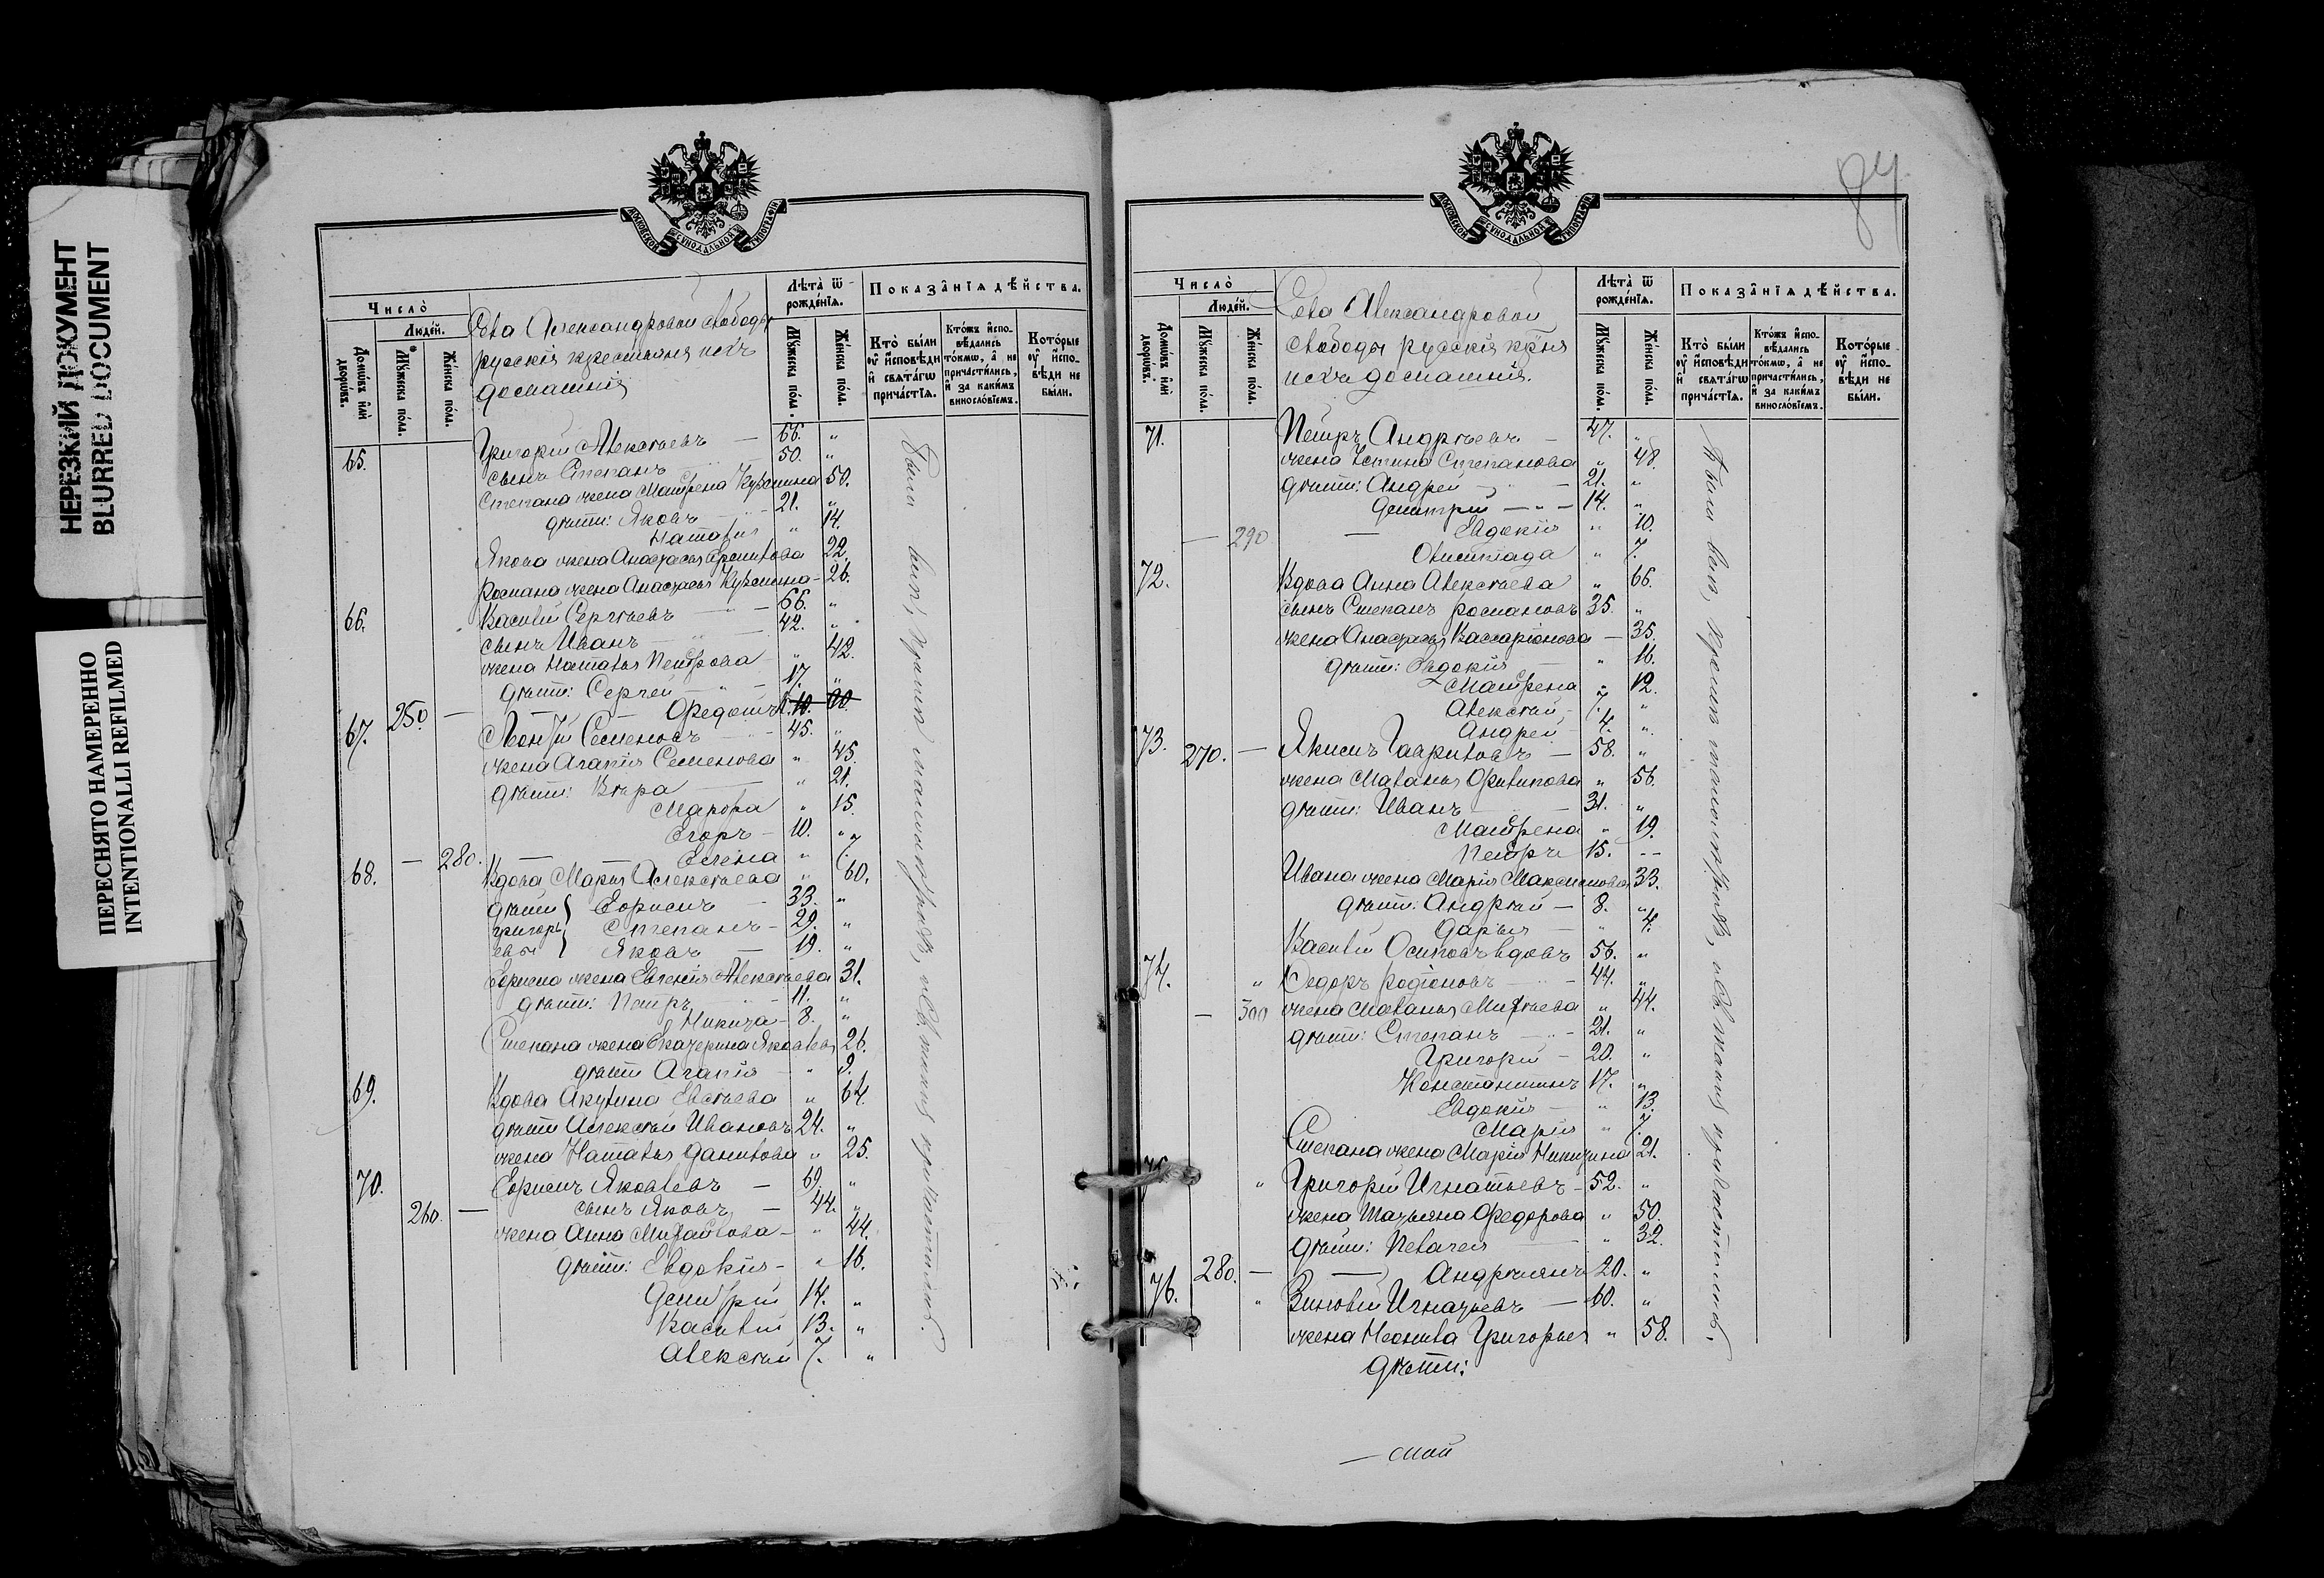 НЕРЕЗКИЙ ДОКУМЕНТ
BLURRED DOCUMENT
ПЕРЕСНЯТО НАМЕРЕННО
INTENTIONALLI REFILMED
МОСКОВСКОЙ СѴНОДАЛЬНОЙ ТИПОГРАФІИ
Число̀
Людéй.
Домóвъ и҆лѝ дворóвъ.
Мꙋ́жеска пóла.
Же́нска пóла.
Села Александровой слободы
русскія крестьяня ихъ
домашнія
Лѣта̀ ѿ рожде́нїѧ.
Мꙋ́жеска пóла.
Же́нска пóла.
Показа̂нїѧ дѣ́йства.
Кто̀ бы́ли ᲂу҆ и҆сповѣ́ди и҆ свѧта́гѡ прича́стїѧ.
Кто́жъ и҆спо-вѣ́дались то́кмѡ, а҆ не причасти́лись, и҆ за каки́мъ виносло́вїемъ.
Кото́рые ᲂу҆ и҆спо-вѣ́ди не бы́ли.
65. Григорій Алексѣевъ — 66. „
сынъ Степанъ 50. „
Степана жена Матрена Кузмина 50.
дѣти: Яковъ 21. „
Наталія „ 14.
Якова жена Анастасія 22.
Романа жена Анастасія Кузмина - 26.
66. Василій Сергѣевъ — 66. „
сынъ Иванъ 42. „
жена Наталья Петрова „ 42.
дѣти: Сергей 17. „
250. — Федотъ 10.
67. Леонтій Семеновъ 45. „
жена Агапія Семенова „ 45.
дѣти: Вѣра „ 21.
Марѳа „ 15.
Егоръ - 10. „
— 280. — Елена „ 7.
68. Вдова Марья Алексѣева „ 60.
дѣти Борисъ — 33. „
Григорь Степанъ - 29. „
евы Яковъ — 19. „
Бориса жена Евгенія Алексѣева 31.
дѣти: Петръ 11. „
Никита - 8. „
Степана жена Екатерина Яковлева 26.
дѣти Агапія „ 9.
69. Вдова Акулина Евсѣева „ 64.
дѣти Алексѣй Ивановъ 24. „
жена Наталья Данилова „ 25.
70. Борисъ Яковлевъ — 69. „
260. — сынъ Яковъ — 44. „
жена Анна Михайлова - „ 44.
дѣти: Евдокія - „ 16.
Димитрій 14. „
Василій 13. „
Алексѣй 7. „
84
МОСКОВСКОЙ СѴНОДАЛЬНОЙ ТИПОГРАФІИ
Число̀
Людéй.
Домóвъ и҆лѝ дворóвъ.
Мꙋ́жеска пóла.
Же́нска пóла.
Села Александровой
слободы русскія крня
ихъ домашнія.
Лѣта̀ ѿ рожде́нїѧ.
Мꙋ́жеска пóла.
Же́нска пóла.
Показа̂нїѧ дѣ́йства.
Кто̀ бы́ли ᲂу҆ и҆сповѣ́ди и҆ свѧта́гѡ прича́стїѧ.
Кто́жъ и҆спо-вѣ́дались то́кмѡ, а҆ не причасти́лись, и҆ за каки́мъ виносло́вїемъ.
Кото́рые ᲂу҆ и҆спо-вѣ́ди не бы́ли.
71. Петръ Андрѣевъ — 47. „
жена Устина Степанова „ 48.
дѣти: Андрей — 21. „
Димитрій — 14. „
— 290 — Евдокія „ 10.
Олимпіада „ 7.
72. Вдова Анна Алексѣева „ 66.
сынъ Степанъ Романовъ 35. „
жена Анастасія Виссаріонова — 35.
дѣти: Евдокія „ 16.
Матрена „ 12.
Алексѣй - 7. „
Андрей 4. „
73. 270. — Якимъ Гавриловъ — 58. „
жена Маланья Филипова „ 56.
дѣти: Иванъ — 31. „
Матрена „ 19.
Петръ 15. --
Ивана жена Марія Максимова 33.
дѣти: Андрѣй — 8. „
Дарья — „ 4.
Василій Осиповъ вдовъ 56. „
74. „ Федоръ Родіоновъ 44. „
— 300 жена Маланья Михѣева „ 44.
дѣти: Степанъ 21. „
Григорій - 20. „
Константинъ 17. „
Евдокія — „ 13.
Марія „ 7.
Степана жена Марія Никитина 21.
75. „ Григорій Игнатьевъ - 52. „
жена Татьяна Федорова „ 50.
дѣти: Пелагея „ 32.
280. — Андреянъ 20. „
76. „ Зиновій Игнатьевъ — 60. „
жена Неонила Григорьев „ 58.
дѣти: